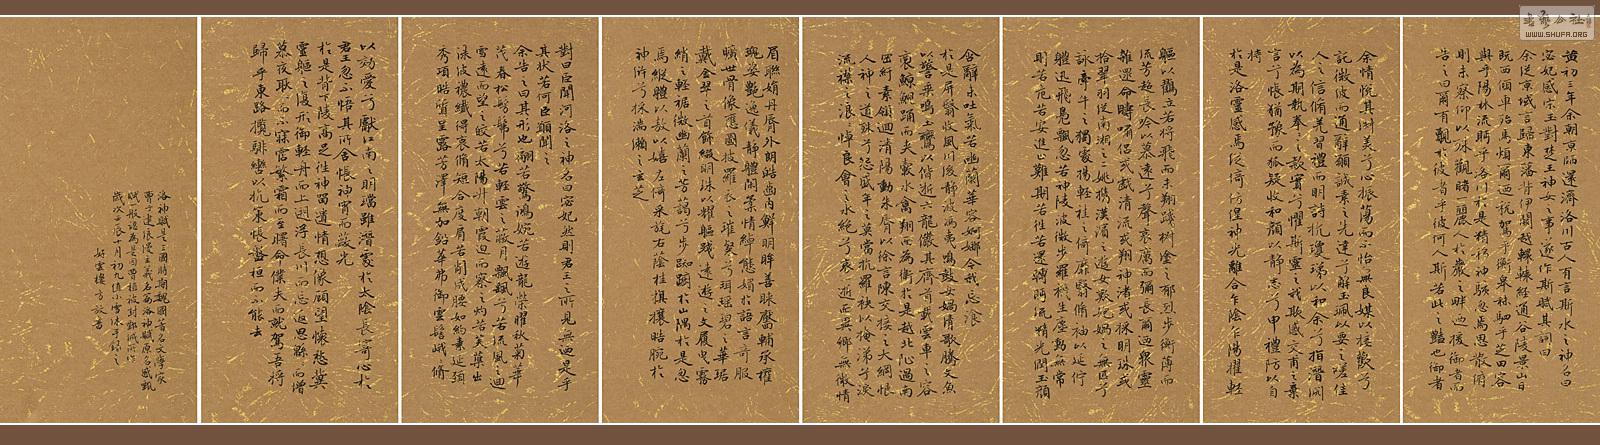 黄初三年余朝京師還濟洛川古人有言斯水之神名曰
宓妃感宋玉對楚王神女之事遂作斯賦其詞曰
余從京域言歸東藩背伊闕越轘轅經通谷陵景山日
既西傾車殆馬煩爾迺稅駕乎蘅皋秣駟乎芝田容
與乎陽林流眄乎洛川於是精移神駭忽焉思散俯
則未察仰以殊觀睹一麗人於巖之畔迺援御者而
告之曰爾有覿於彼者乎彼何人斯若此之豔也御者
余情悅其淑美兮心振蕩而不怡無良媒以接歡兮
託微波而通辭願誠素之先達兮解玉珮以要之嗟佳
人之信脩羌習禮而明詩抗瓊珶以和余兮指潛淵
以為期執拳之款實兮懼斯靈之我欺感交甫之棄
言兮悵猶豫而狐疑收和顏以靜志兮申禮防以自
持
於是洛靈感焉徙倚彷徨神光離合乍陰乍陽擢輕
軀以鶴立若將飛而未翔踐椒塗之郁烈步蘅薄而
流芳超長吟以慕遠兮聲哀厲而彌長爾迺眾靈
雜遝命疇嘯侶或戲清流或翔神渚或採明珠或
拾翠羽從南湘之二姚攜漢濱之遊女歎匏媧之無匹兮
詠牽牛之獨處揚輕袿之倚靡翳脩袖以延佇
體迅飛鳧飄忽若神陵波微步羅襪生塵動無常
則若危若安進止難期若往若還轉眄流精光潤玉顏
含辭未吐氣若幽蘭華容婀娜令我忘飡
於是屏翳收風川后靜波馮夷鳴鼓女媧清歌騰文魚
以警乘鳴玉鸞以偕逝六龍儼其齊首載雲車之容
裔鯨鯢踊而夾轂水禽翔而為衛於是越北沚過南
岡紆素領迴清陽動朱脣以徐言陳交接之大綱恨
人神之道殊兮怨盛年之莫當抗羅袂以掩涕兮淚
流襟之浪浪悼良會之永絕兮哀一逝而異鄉無微情
眉聯娟丹脣外朗皓齒內鮮明眸善睞靨輔承權
瑰姿艷逸儀靜體閑柔情綽態媚於語言奇服
曠世骨像應圖披羅衣之璀粲兮珥瑤碧之華琚
戴金翠之首飾綴明珠以耀軀踐遠遊之文履曳霧
綃之輕裾微幽蘭之芳藹兮步踟躕於山隅於是忽
焉縱體以遨以嬉左倚采旄右蔭桂旗攘皓腕於
神滸兮採湍瀨之玄芝
對曰臣聞河洛之神名曰宓妃然則君王之所見無迺是乎
其狀若何臣願聞之
余告之曰其形也翩若驚鴻婉若遊龍榮曜秋菊華
茂春松髣髴兮若輕雲之蔽月飄颻兮若流風之迴
雪遠而望之皎若太陽升朝霞迫而察之灼若芙蕖出
淥波襛纖得衷脩短合度肩若削成腰如約素延頸
秀項皓質呈露芳澤無加鉛華弗御雲髻峨峨脩
以効愛兮獻江南之明璫雖潛處於太陰長寄心於
君王忽不悟其所舍悵神宵而蔽光
於是背下陵高足往神留遺情想像顧望懷愁冀
靈軀之復形御輕舟而上遡浮長川而忘返思緜緜而增
慕夜耿耿而不寐霑繁霜而至曙命僕夫而就駕吾將
歸乎東路攬騑轡以抗策悵盤桓而不能去
洛神賦是三國時期魏國著名文學家
曹子建浪漫主義名篇洛神賦原名感甄
賦一般認為是因曹植被封鄄城所作
歲次 十月初九值小雪 錄之
好雲樓 方 書
WWW.SHUFA.ORG